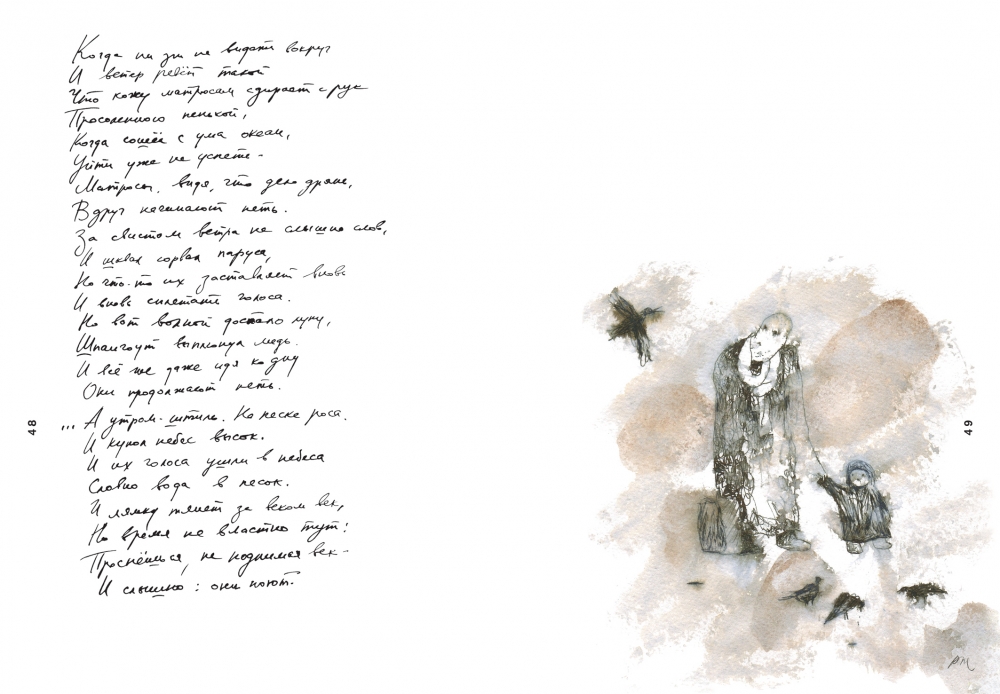 Когда ни зги не видать вокруг
И ветер ревёт такой
Что кожу матросам сдирает с рук
Просоленного пенькой,
Когда сошёл с ума океан,
Уйти уже не успеть -
Матросы, видя, что дело дрянь,
Вдруг начинают петь.
За свистом ветра не слышно слов,
И шквал сорвал паруса,
Но что-то их заставляет вновь
И вновь сплетать голоса.
Но вот волной достало луну,
Шпангоут выплюнул медь.
И всё же даже идя ко дну
Они продолжают петь.
... А утром - штиль. На песке роса.
И купол небес высок.
И их голоса ушли в небеса
Словно вода в песок.
И лямку тянет за веком век,
Но время не властно тут:
Проснёшься, не поднимая век -
И слышно: они поют.
48
49
РМ